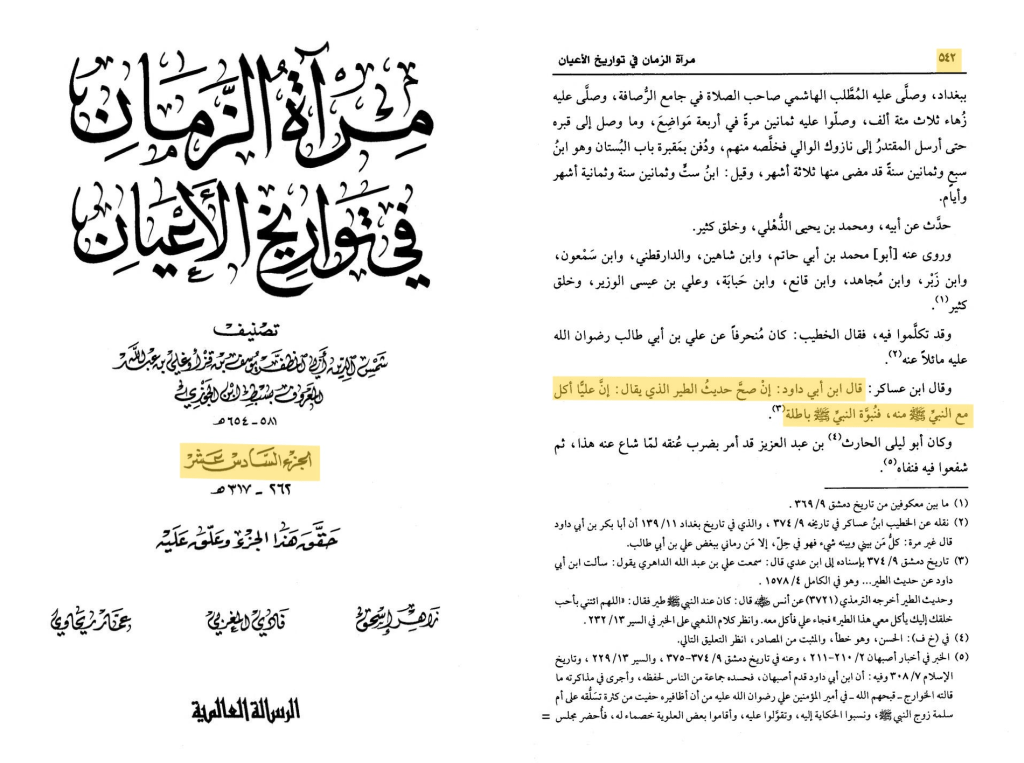 مِرآةُ الزَّمَانِ
في تَوارِيخِ الأَعْيَانِ
تصنيف
شمس الدين أبي المظفر يوسف بن قزأوغلي بن عبد الله
المعروف بسبط ابن الجوزي
٥٨١ - ٦٥٤ هـ
الجزء السادس عشر
٢٦٢ - ٣١٧ هـ
حقق هذا الجزء وعلق عليه
زاهر إسحق فادي المغربي عمار ريحاوي
الرسالة العالمية
٥٤٢ مرآة الزمان في تواريخ الأعيان
ببغداد، وصلَّى عليه المُطَّلب الهاشمي صاحب الصلاة في جامع الرُّصافة، وصلَّى عليه
زُهاء ثلاث مئة ألف، وصلّوا عليه ثمانين مرةً في أربعة مَواضِعَ، وما وصل إلى قبره
حتى أرسل المقتدرُ إلى نازوك الوالي فخلَّصه منهم، ودُفن بمَقبرة باب البُستان وهو ابنُ
سبعٍ وثمانين سنةً قد مضى منها ثلاثة أشهر، وقيل: ابنُ ستٍّ وثمانين سنة وثمانية أشهر
وأيام.
حدَّث عن أبيه، ومحمد بن يحيى الذُّهْلي، وخلق كثير.
وروى عنه [أبو] محمد بن أبي حاتم، وابن شاهين، والدارقطني، وابن سَمْعون،
وابن زَبْر، وابن مُجاهد، وابن قانع، وابن حَبابَة، وعلي بن عيسى الوزير، وخلق
كثير(١).
وقد تكلَّموا فيه، فقال الخطيب: كان مُنحرفاً عن علي بن أبي طالب رضوان الله
عليه مائلاً عنه(٢).
وقال ابن عساكر: قال ابن أبي داود: إنْ صحَّ حديثُ الطير الذي يقال: إنَّ عليًّا أكل
مع النبيِّ ﷺ منه، فنُبوَّة النبيِّ ﷺ باطلة(٣).
وكان أبو ليلى الحارث(٤) بن عبد العزيز قد أمر بضرب عُنقه لمّا شاع عنه هذا، ثم
شفعوا فيه فنفاه(٥).
(١) ما بين معكوفين من تاريخ دمشق ٩/ ٣٦٩ .
(٢) نقله عن الخطيب ابنُ عساكر في تاريخه ٩/ ٣٧٤ ، والذي في تاريخ بغداد ١١/ ١٣٩ أن أبا بكر بن أبي داود
قال غير مرة: كلُّ مَن بيني وبينه شيء فهو في حِلّ، إلا مَن رماني ببغض علي بن أبي طالب.
(٣) تاريخ دمشق ٩/ ٣٧٤ بإسناده إلى ابن عدي قال: سمعت علي بن عبد الله الداهري يقول: سألت ابن أبي
داود عن حديث الطير... وهو في الكامل ٤/ ١٥٧٨ .
وحديث الطير أخرجه الترمذي (٣٧٢١) عن أنس ﷺ قال: كان عند النبي ﷺ طير فقال: «اللهم ائتني بأحب
خلقك إليك يأكل معي هذا الطير» فجاء علي فأكل معه. وانظر كلام الذهبي على الخبر في السير ١٣/ ٢٣٢ .
(٤) في (خ ف): الحسن، وهو خطأ، والمثبت من المصادر، انظر التعليق التالي.
(٥) الخبر في أخبار أصبهان ٢/ ٢١٠-٢١١ ، وعنه في تاريخ دمشق ٩/ ٣٧٤-٣٧٥ ، والسير ١٣/ ٢٢٩ ، وتاريخ
الإسلام ٧/ ٣٠٨ وفيه: أن ابن أبي داود قدم أصبهان، فحسده جماعة من الناس لحفظه، وأجرى في مذاكرته ما
قالته الخوارج ـ قبحهم الله ـ في أمير المؤمنين علي رضوان الله عليه من أن أظافيره حفيت من كثرة تسَلُّقه على أم
سلمة زوج النبي ﷺ، ونسبوا الحكاية إليه، وتقوَّلوا عليه، وأقاموا بعض العلوية خصماء له، فأُحضر مجلس =